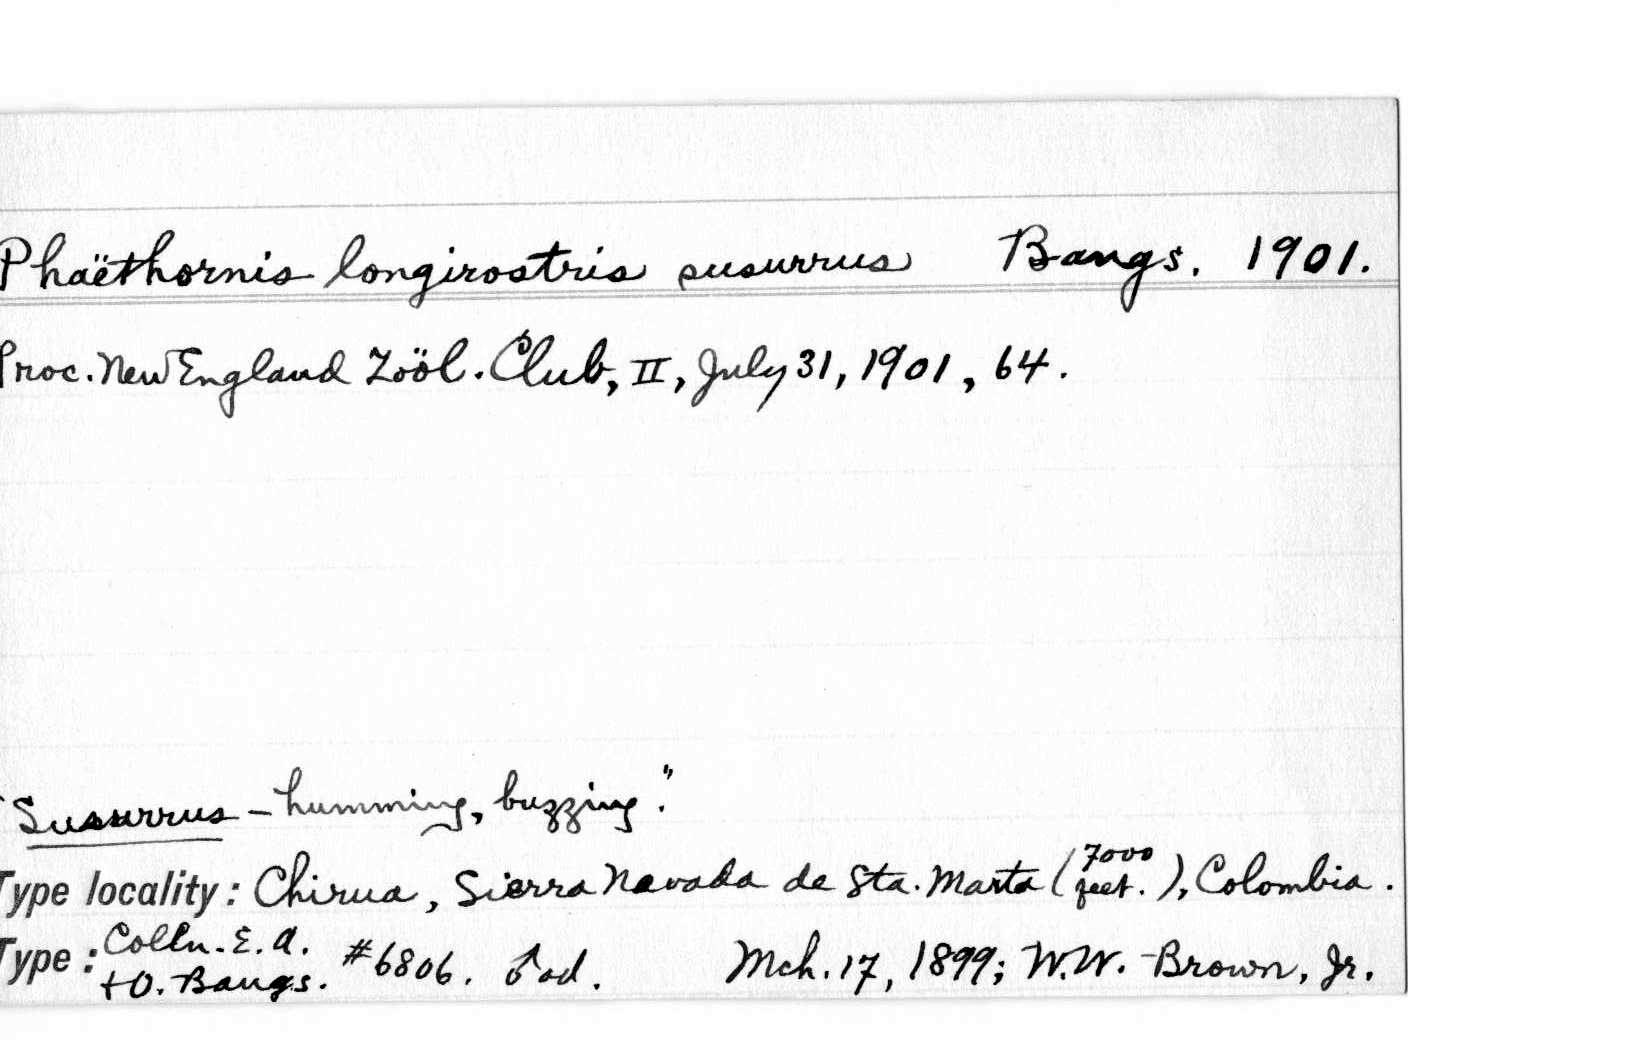 Phaëthornis longirostris susurrus Bangs. 1901.
Proc. New England Zoöl. Club, II, July 31, 1901, 64.
"Susurrus - humming, buzzing."
Type locality: Chirua, Sierra Nevada de Sta. Marta (7000 feet.), Colombia.
Type: Colln. E. A. + O. Bangs. #6806. ♂ ad. Mch. 17, 1899; W.W. Brown, Jr.